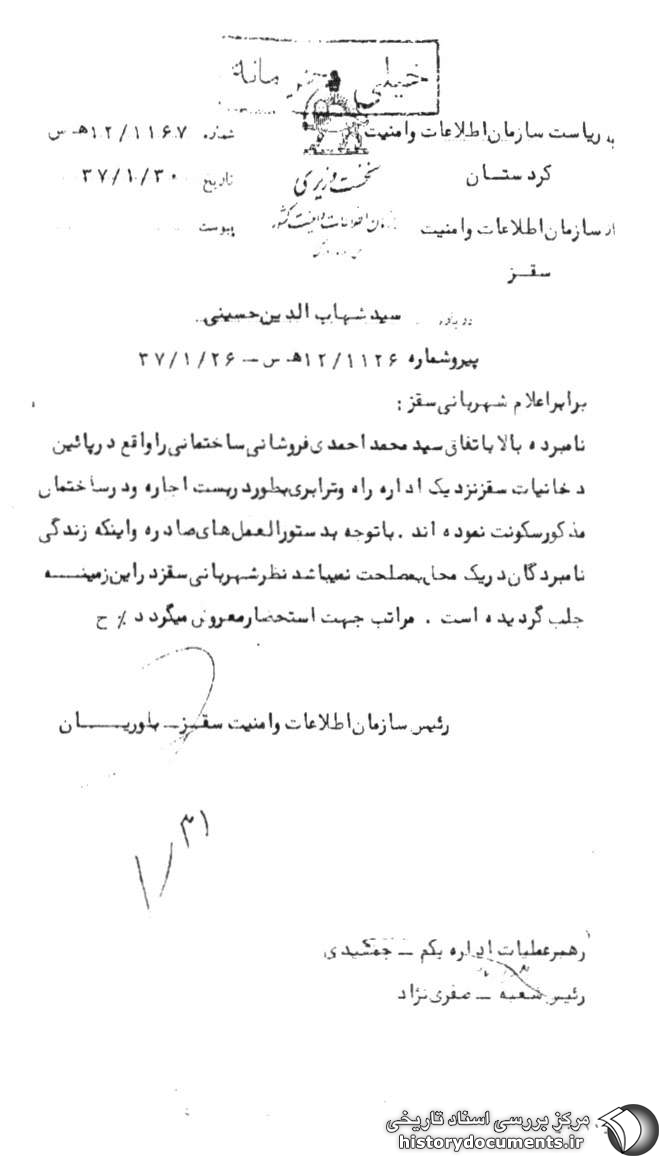 خیلی محرمانه
به ریاست سازمان اطلاعات وامنیت
کردستــان
از سازمان اطلاعات وامنیت
سقــز
نخست وزیری
سازمان اطلاعات و امنیت کشور
شماره ۱۲/۱۱۶۷هـ س
تاریخ ۳۷/۱/۳۰
پیوست
درباره سیدشهاب الدین حسینی
پیروشماره ۱۲/۱۱۲۶هـ س – ۳۷/۱/۲۶
برابراعلام شهربانی سقز :
نامبرده بالا باتفاق سید محمد احمدی فروشانی ساختمانی راواقع درپائین
دخانیات سقزنزدیک اداره راه وترابری بطوردربست اجاره ودرساختمان
مذکورسکونت نموده اند . باتوجه بدستورالعمل های صادره واینکه زندگی
نامبردگان دریک محل بمصلحت نمیباشد نظرشهربانی سقزدراین زمینـــه
جلب گردیده است . مراتب جهت استحضارمعروض میگردد٪ ح
رئیس سازمان اطلاعات وامنیت سقــز ــ یاوریــــان
۳۱/۱
رهبرعملیات اداره یکم ــ جمشیدی
رئیس شعبه ــ صفری نژاد
مرکز بررسی اسناد تاریخی
historydocuments.ir